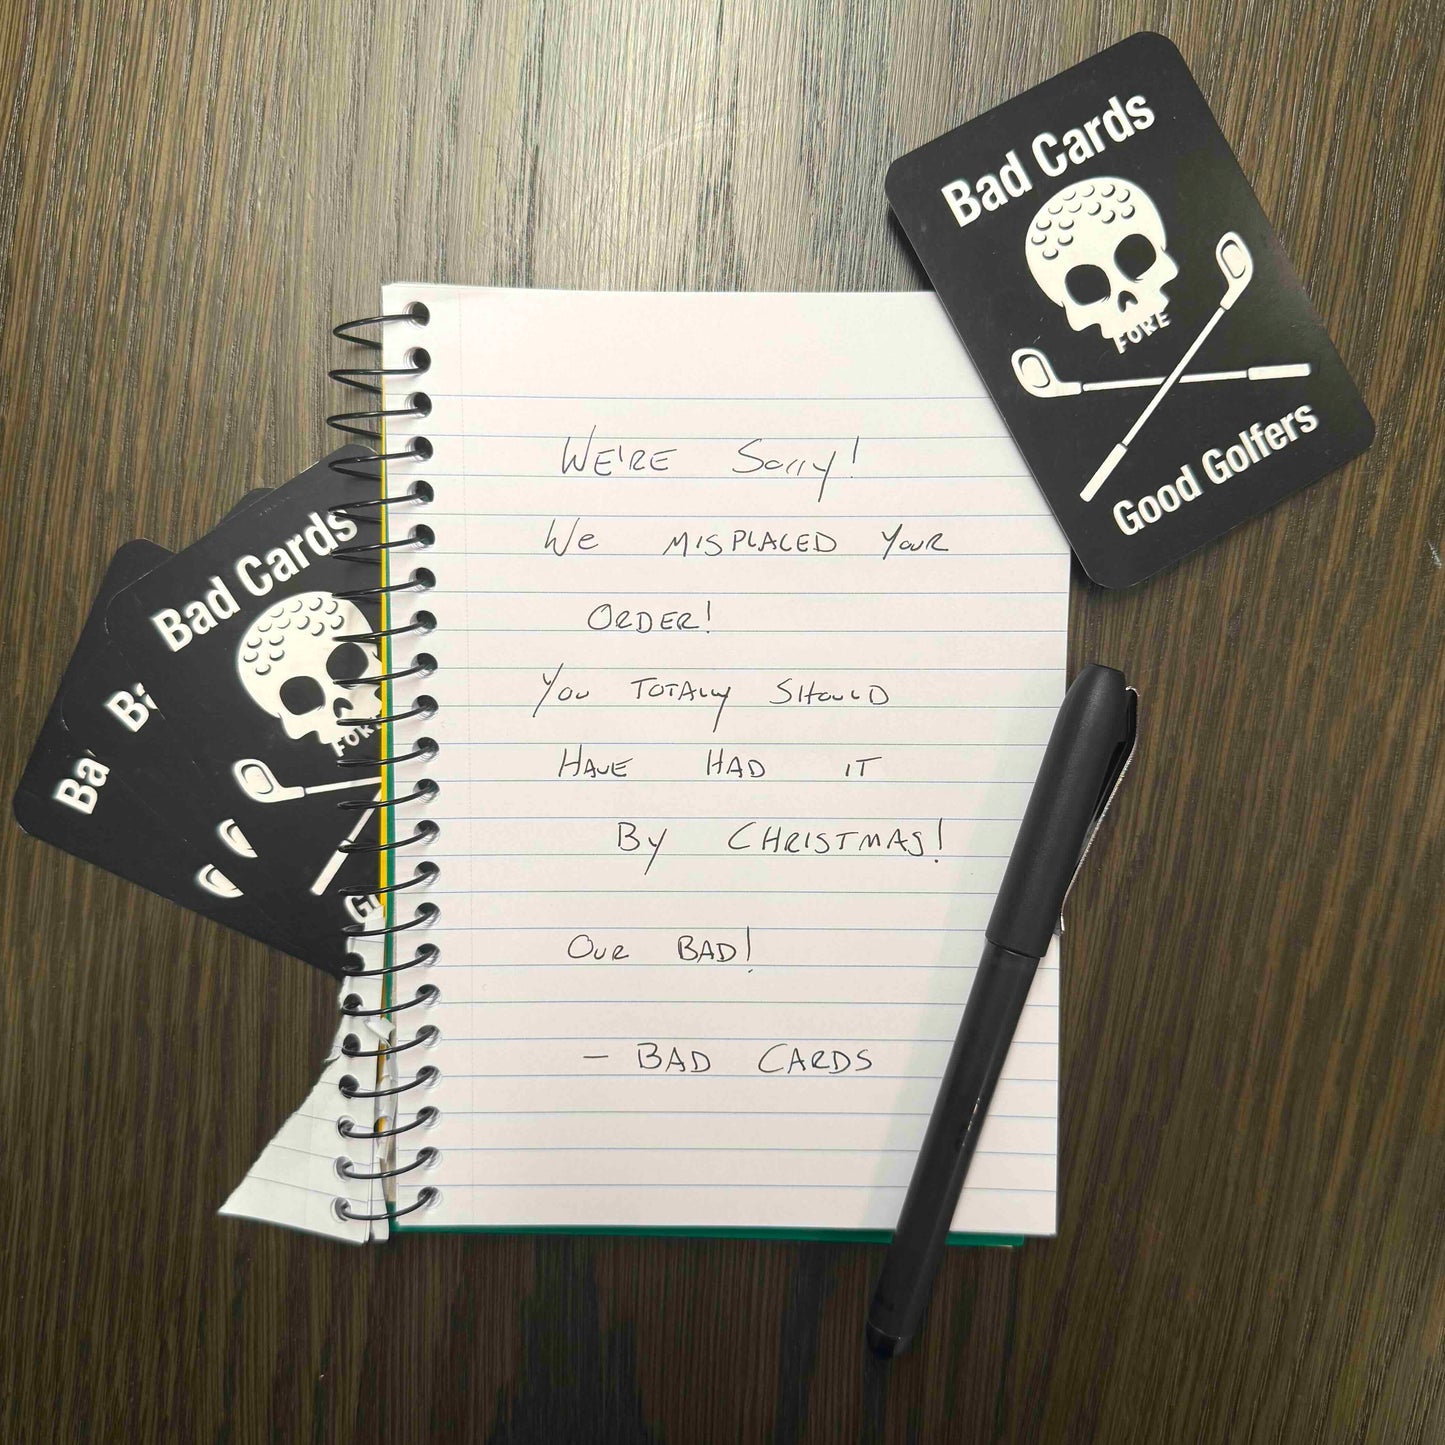 Bad Cards
FORE
Good Golfers
WE'RE Sorry!
We MISPLACED YOUR
ORDER!
You TOTAlly SHOULD
HAVE HAD IT
By CHRISTMAS!
OUR BAD!
- BAD CARDS
Bad Cards
FORE
Ba
Ba